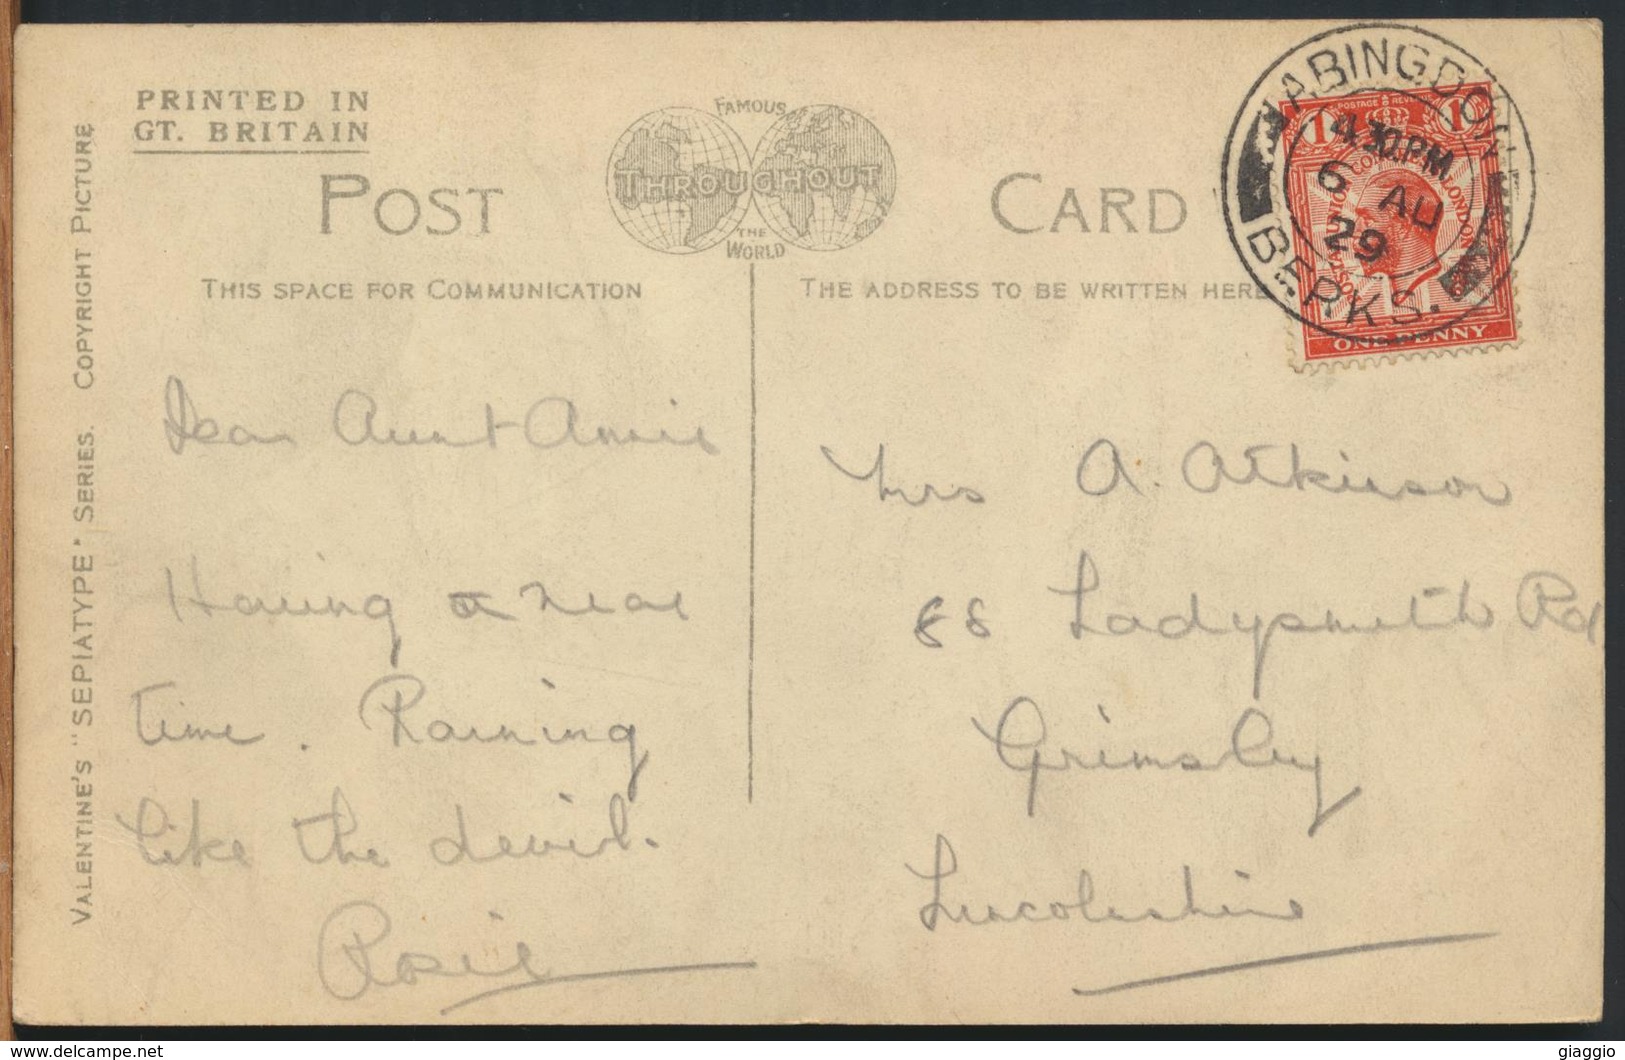 PRINTED IN
GT. BRITAIN
VALENTINE'S "SEPIATYPE" SERIES. COPYRIGHT PICTURE
POST CARD
FAMOUS
THROUGHOUT
THE
WORLD
THIS SPACE FOR COMMUNICATION
THE ADDRESS TO BE WRITTEN HERE
ABINGDON
4.30 PM
6 AU
29
BERKS.
1 POSTAGE REVENUE 1
POSTAL UNION CONGRESS LONDON
1929
ONE PENNY
Dear Aunt Annie
Having a near
time. Raining
like the devil.
Rosie
Mrs A. Atkinson
88 Ladysmith Rd
Grimsby
Lincolnshire
giaggio